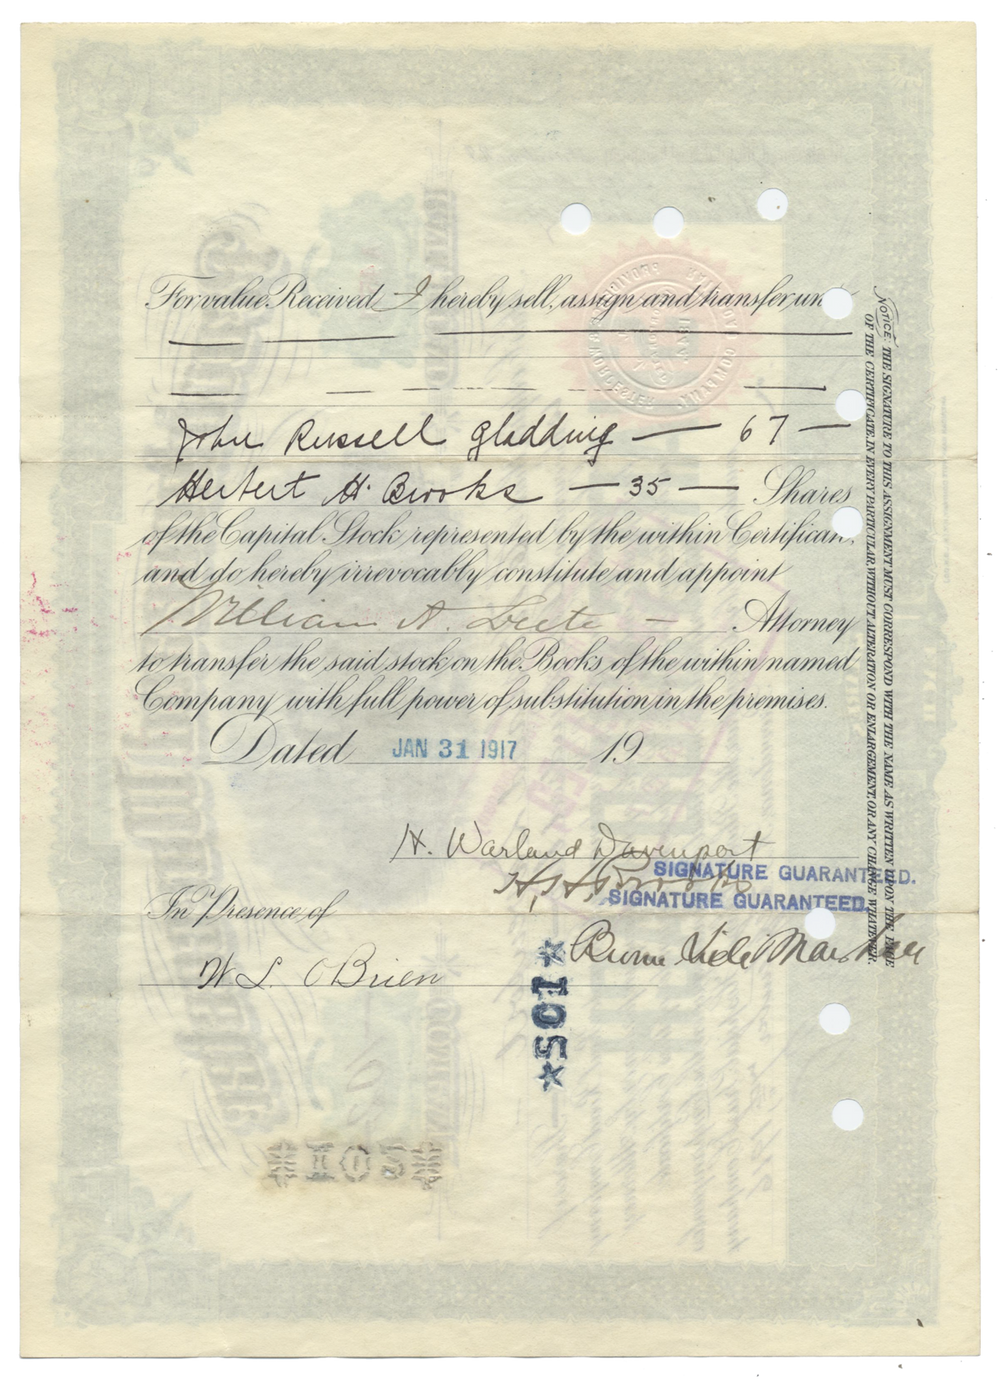 For value Received I hereby sell, assign and transfer un
John Russell Gladding — 67 —
Herbert H. Brooks — 35 — Shares
of the Capital Stock represented by the within Certificate,
and do hereby irrevocably constitute and appoint
William A Leete — Attorney
to transfer the said stock on the Books of the within named
Company with full power of substitution in the premises.
Dated JAN 31 1917 19
H. Warland Davenport
SIGNATURE GUARANTEED.
H. H. Brooks
SIGNATURE GUARANTEED.
In Presence of
W L O'Brien
★SCI★
NOTICE. THE SIGNATURE TO THIS ASSIGNMENT MUST CORRESPOND WITH THE NAME AS WRITTEN UPON THE FACE
OF THE CERTIFICATE, IN EVERY PARTICULAR, WITHOUT ALTERATION OR ENLARGEMENT, OR ANY CHANGE WHATEVER.